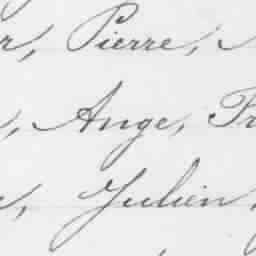 Pierre,
Ange,
Julien